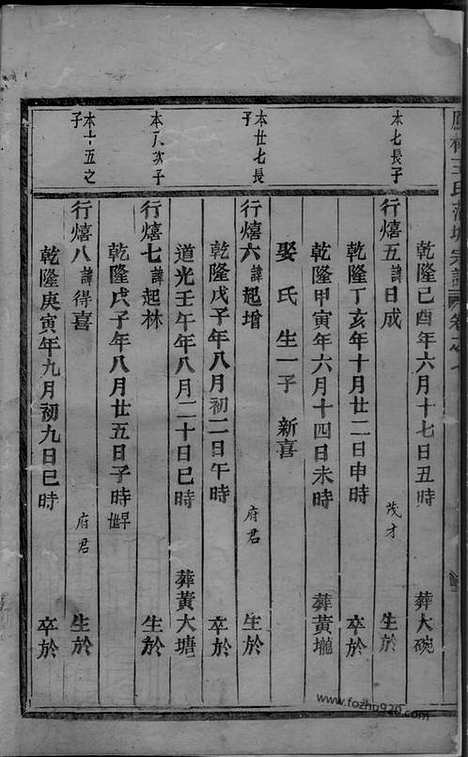 林王氏 宗譜 卷之七
乾隆己酉年六月十七日丑時 葬大碗
本七長子
行熺五諱日成 茂才 生於
乾隆丁亥年十月廿二日申時 卒於
乾隆甲寅年六月十四日未時 葬黃壠
娶氏 生一子 新喜
本廿七長子
行熺六諱起增 府君 生於
乾隆戊子年八月初二日午時 卒於
道光壬午年八月二十日巳時 葬黃大塘
本八次子
行熺七諱起林 生於
乾隆戊子年八月廿五日子時 早世
本十五之子
行熺八諱得喜 府君 生於
乾隆庚寅年九月初九日巳時 卒於
www.fozhu920.com